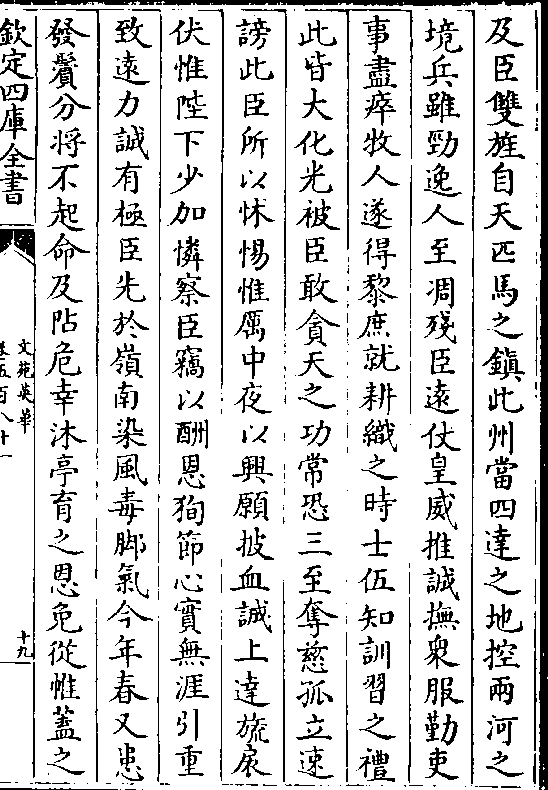 及臣雙旌自天匹馬之鎭此州當四達之地控兩河之
境兵雖勁逸人至凋殘臣遠仗皇威推誠撫衆服勤吏
事盡瘁牧人遂得黎庶就耕織之時士伍知訓習之禮
此皆大化光被臣敢貪天之功常恐三至奪慈孤立速
謗此臣所以怵惕惟厲中夜以興願披血誠上達旒扆
伏惟陛下少加憐察臣竊以酬恩狥節心實無涯引重
致遠力誠有極臣先於嶺南染風毒脚氣今年春又患
發鬢分將不起命及阽危幸沐亭育之恩免從帷蓋之
欽定四庫全書
文苑英華
卷五百八十一
十九